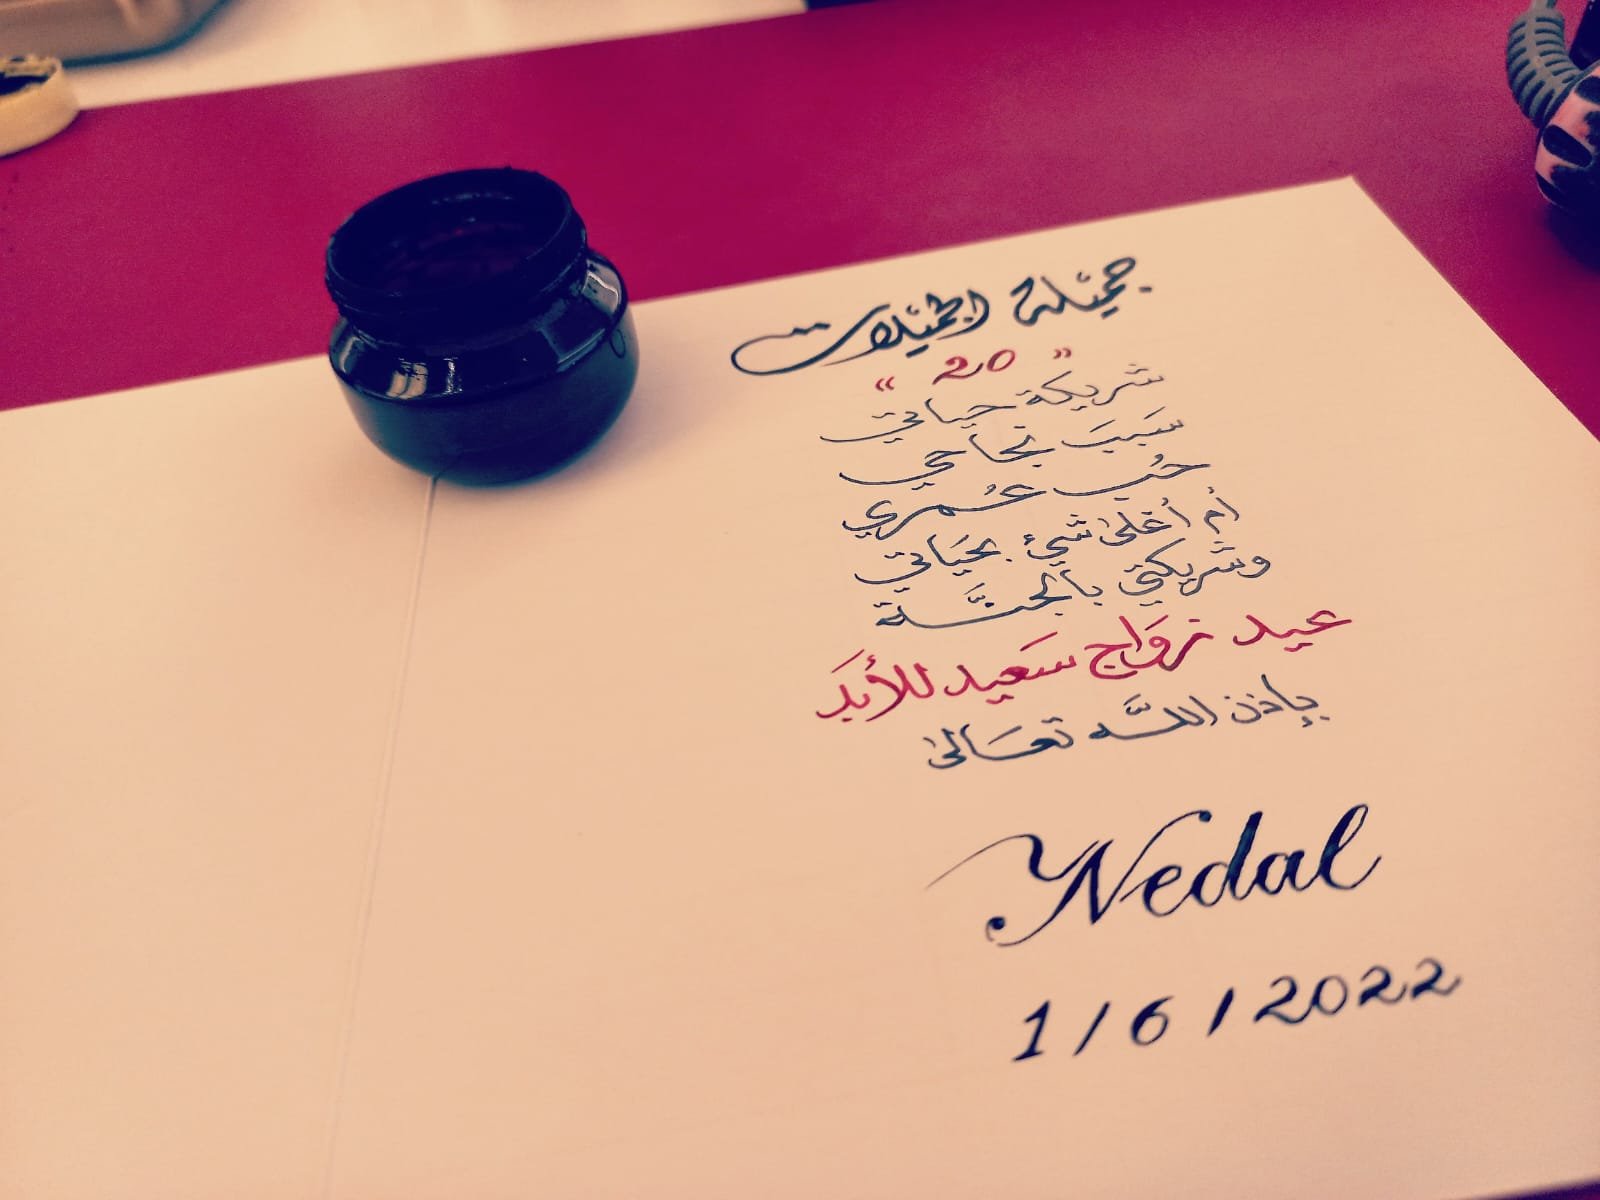 جميلة الجميلات
" 20 "
شريكة حياتي
سَبَبَ نجاحي
حُب عُمري
أم أغلى شيء بحَياتي
وشريكتي بالجنَّة
عيد زوَاج سَعيد للأبَد
بإذن اللَّه تعَالى
Nedal
1 / 6 / 2022